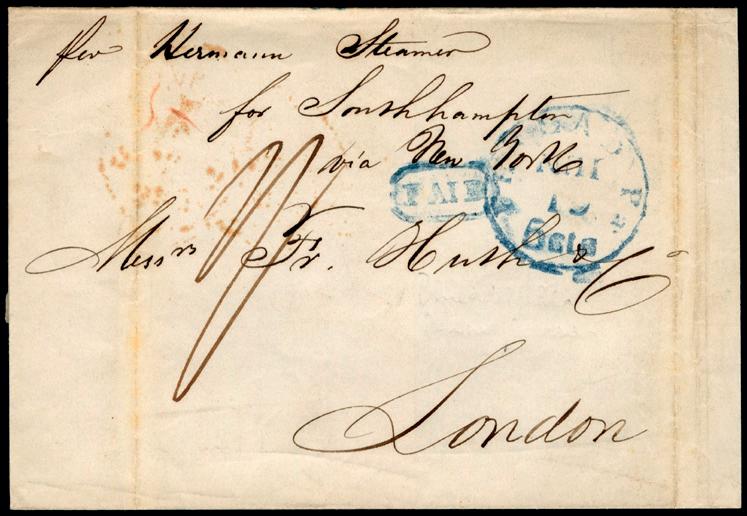 per Hermann Steamer
for Southhampton
via New York
Messrs Fr. Huth & Co
London